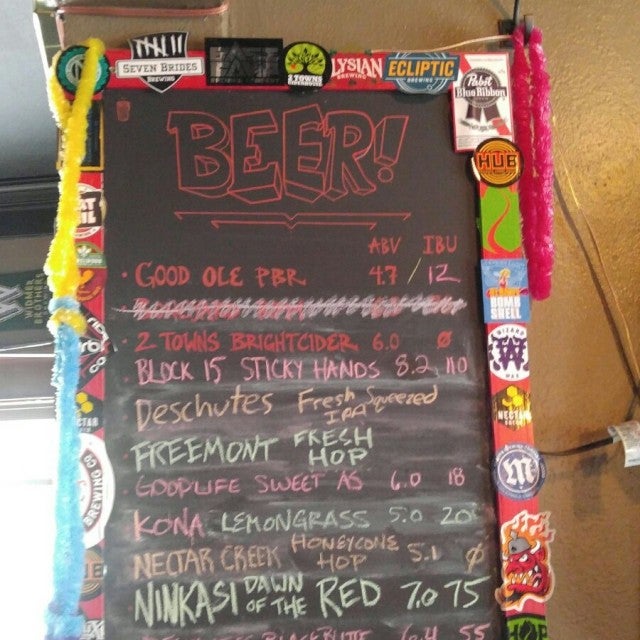 SEVEN BRIDES
BREWING
2 TOWNS
CIDERHOUSE
ELYSIAN
BREWING
ECLIPTIC
BREWING
Pabst
Blue Ribbon
HUB
BEER!
ABV IBU
• GOOD OLE PBR 4.7 / 12
• 2 TOWNS BRIGHTCIDER 6.0 ø
• BLOCK 15 STICKY HANDS 8.2 110
DESCHUTES Fresh Squeezed
IPA
• FREEMONT FRESH
HOP
GOODLIFE SWEET AS 6.0 18
KONA LEMONGRASS 5.0 20
NECTAR CREEK HONEYCONE
HOP 5.1 ø
NINKASI DAWN
OF THE RED 7.0 75
6.4 55
BOMB
SHELL
WIZARD
WAX
NECTAR
CREEK
BREWING CO
HOP